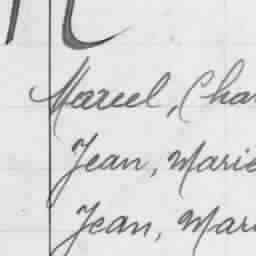 Marcel, Char
Jean, Marie
Jean, Mari